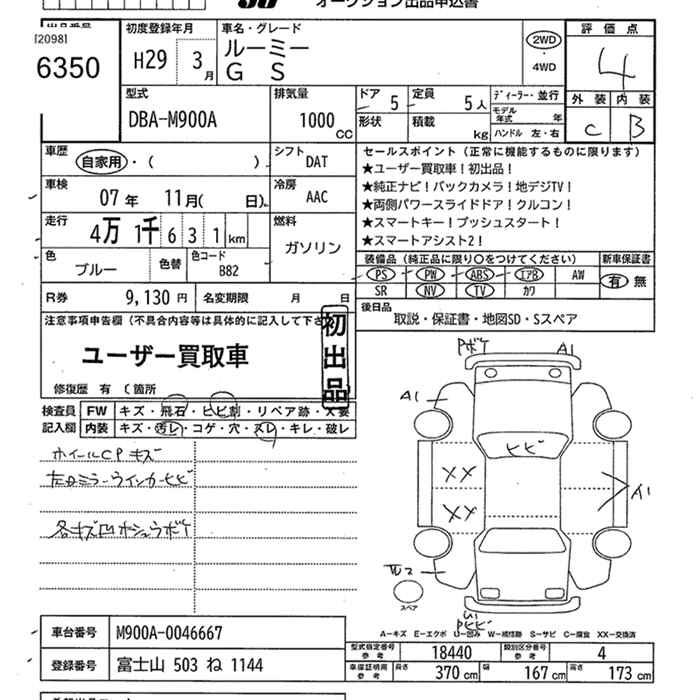 オークション出品申込書
[2098]
6350
初度登録年月
H29 3月
車名・グレード
ルーミー
G S
2WD
・
4WD
評価点
4
外装 内装
C B
型式
DBA-M900A
排気量
1000 CC
ドア 5
定員 5人
形状
積載 kg
ディーラー・並行
モデル年式 年
ハンドル 左・右
車歴
自家用・( )
シフト
DAT
車検
07年 11月( 日)
冷房
AAC
走行
4万 1千 6 3 1 km
燃料
ガソリン
色
ブルー
色替
色コード
B82
R券 9,130円
名変期限 月 日
セールスポイント(正常に機能するものに限ります)
★ユーザー買取車!初出品!
★純正ナビ!バックカメラ!地デジTV!
★両側パワースライドドア!クルコン!
★スマートキー!プッシュスタート!
★スマートアシスト2!
装備品(純正品に限り○をつけてください)
新車保証書
PS PW ABS エアB AW
有 無
SR NV TV カワ
後日品
取説・保証書・地図SD・Sスペア
注意事項申告欄(不具合内容等は具体的に記入して下さ
初出品
ユーザー買取車
修復歴 有 (箇所
検査員
記入欄
FW キズ・飛石・ヒビ割・リペア跡・X要
内装 キズ・汚レ・コゲ・穴・スレ・キレ・破レ
ホイールCPキズ
左ドミラーウインカーヒビ
各キズ凹ホシュラボケ
Pボケ A1
A1
ヒビ
XX
XX
A1
スペア
Pヒビ
A-キズ E-エクボ U-凹み W-補修跡 S-サビ C-腐食 XX-交換済
車台番号 M900A-0046667
登録番号 富士山 503 ね 1144
型式指定番号 参考 18440
類別区分番号 参考 4
車庫証明用 参考
長さ 370 cm
幅 167 cm
高さ 173 cm